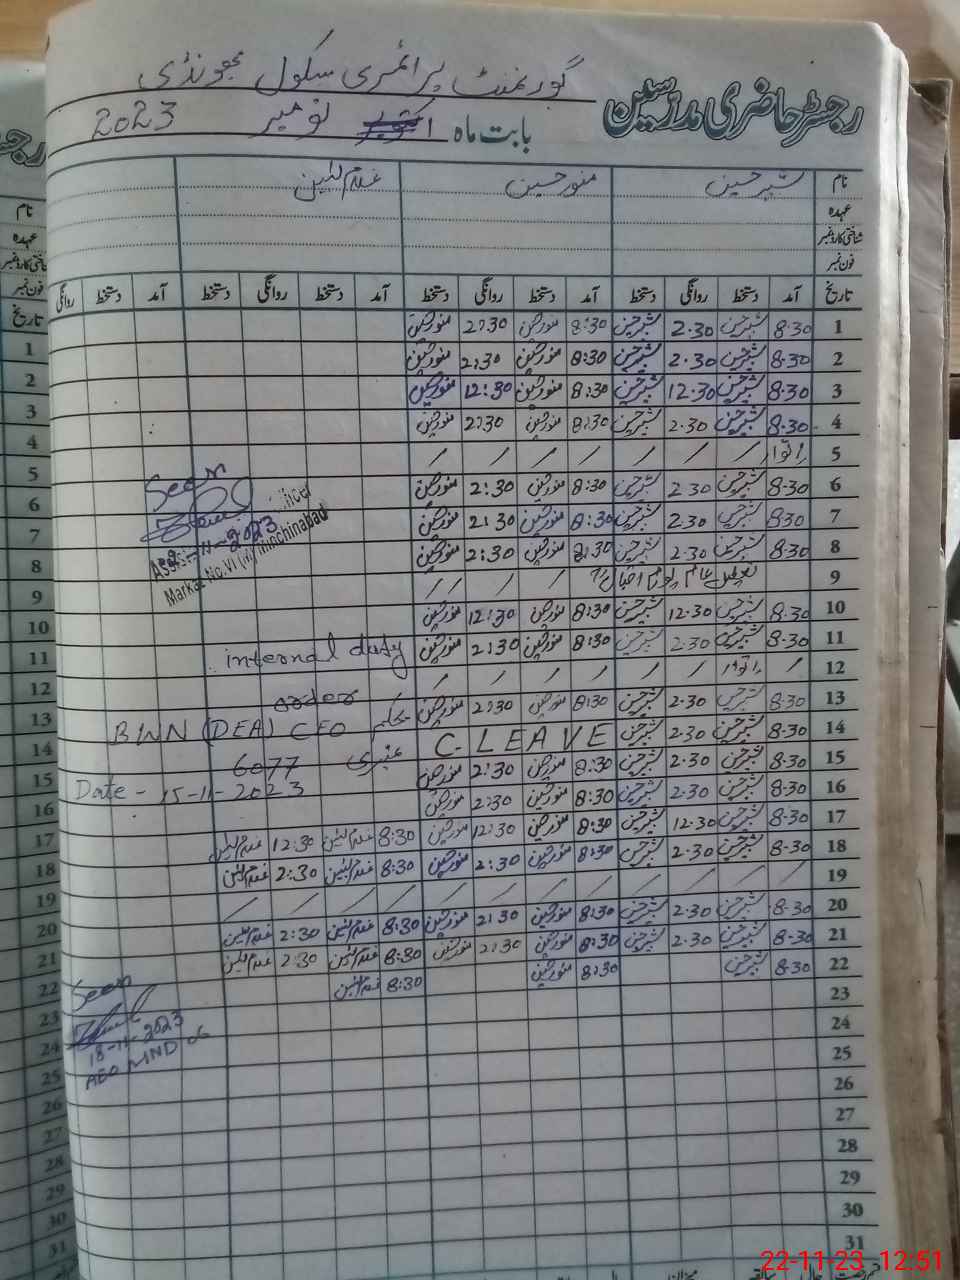 گورنمنٹ پرائمری سکول بھونڈی
رجسٹر حاضری مدرسین
بابت ماہ اکتوبر نومبر 2023
نام شبیر حسین منور حسین
عہدہ
شناختی کارڈ نمبر
فون نمبر
تاریخ آمد دستخط روانگی دستخط آمد دستخط روانگی دستخط آمد دستخط روانگی دستخط آمد دستخط روانگی
1 8:30 شبیر حسین 2.30 شبیر حسین 8:30 منور حسین 2:30 منور حسین
2 8:30 شبیر حسین 2.30 شبیر حسین 8:30 منور حسین 2:30 منور حسین
3 8:30 شبیر حسین 12.30 شبیر حسین 8:30 منور حسین 12:30 منور حسین
4 8.30 شبیر حسین 2.30 شبیر حسین 8:30 منور حسین 2:30 منور حسین
5 اتوار / / / / / / /
6 8.30 شبیر حسین 2.30 شبیر حسین 8:30 منور حسین 2:30 منور حسین
7 8:30 شبیر حسین 2.30 شبیر حسین 8:30 منور حسین 2:30 منور حسین
8 8.30 شبیر حسین 2.30 شبیر حسین 8:30 منور حسین 2:30 منور حسین
9 تعطیل عام یوم اقبال / / / /
10 8.30 شبیر حسین 12.30 شبیر حسین 8:30 منور حسین 12:30 منور حسین
11 8.30 شبیر حسین 2.30 شبیر حسین 8:30 منور حسین 2:30 منور حسین
12 / اتوار / / / / / /
13 8.30 شبیر حسین 2.30 شبیر حسین 8:30 منور حسین 2:30 منور حسین
14 8.30 شبیر حسین 2.30 شبیر حسین C-LEAVE
15 8.30 شبیر حسین 2.30 شبیر حسین 8:30 منور حسین 2:30 منور حسین
16 8.30 شبیر حسین 2.30 شبیر حسین 8:30 منور حسین 2:30 منور حسین
17 8.30 شبیر حسین 12.30 شبیر حسین 8:30 منور حسین 12:30 منور حسین 8:30 12:30
18 8.30 شبیر حسین 2.30 شبیر حسین 8:30 منور حسین 2:30 منور حسین 8:30 2:30
19 / / / / / / / / / / / /
20 8.30 شبیر حسین 2.30 شبیر حسین 8:30 منور حسین 2:30 منور حسین 8:30 2:30
21 8.30 شبیر حسین 2.30 شبیر حسین 8:30 منور حسین 2:30 منور حسین 8:30 2:30
22 8.30 شبیر حسین 8:30 منور حسین 8:30
23
24
25
26
27
28
29
30
31
Seen
-11-2023
Markaz No.VI (M) Minchinabad
internal duty
order
بحکم BWN (DEA) CEO
نمبری 6077
Date - 15-11-2023
Seen
18-11-2023
AEO MND 06
رجسٹر
نام
عہدہ
شناختی کارڈ نمبر
فون نمبر
تاریخ
1
2
3
4
5
6
7
8
9
10
11
12
13
14
15
16
17
18
19
20
21
22
23
24
25
26
27
28
29
30
31
22-11-23 12:51